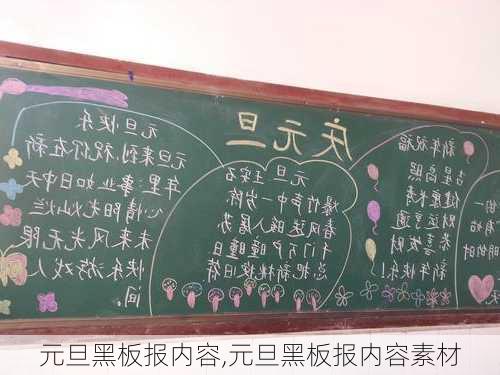 庆元旦
新年祝福
吉星高照
健康长寿
财运亨通
恭喜发财
新年快乐!
元旦 王安石
爆竹声中一岁除
春风送暖入屠苏
千门万户瞳瞳日
总把新桃换旧符
元旦快乐
元旦来到祝你在新
年里:事业如日中天
心情阳光灿烂
未来风光无限
快乐游戏人
间。
元旦黑板报内容,元旦黑板报内容素材